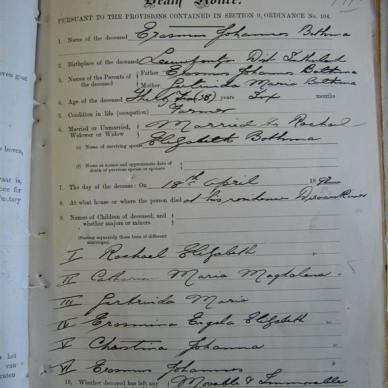 Death Notice.
PURSUANT TO THE PROVISIONS CONTAINED IN SECTION 9, ORDINANCE No. 104.
1. Name of the deceased Erasmus Johannes Bothma
2. Birthplace of the deceased Dist Tulbagh
3. Names of the Parents of the deceased
Father Erasmus Johannes Bothma
Mother Gertruida Maria Bothma
4. Age of the deceased (38) years Six months
5. Condition in life (occupation) Farmer
6. Married or Unmarried, Widower or Widow Married to Rachael
(i) Name of surviving spouse Elizabeth Bothma
(ii) Name or names and approximate date of death of previous spouse or spouses
7. The day of the decease: On 18th April 189
8. At what house or where the person died at his residence
9. Names of Children of deceased, and whether majors or minors
(Stating separately those born of different marriages).
I Rachael Elizabeth
II Catharina Maria Magdalena
III Gertruida Maria
IV Erasmina Engela Elizabeth
V Christina Johanna
VI Erasmus Johannes
10. Whether deceased has left any Movable & Immovable